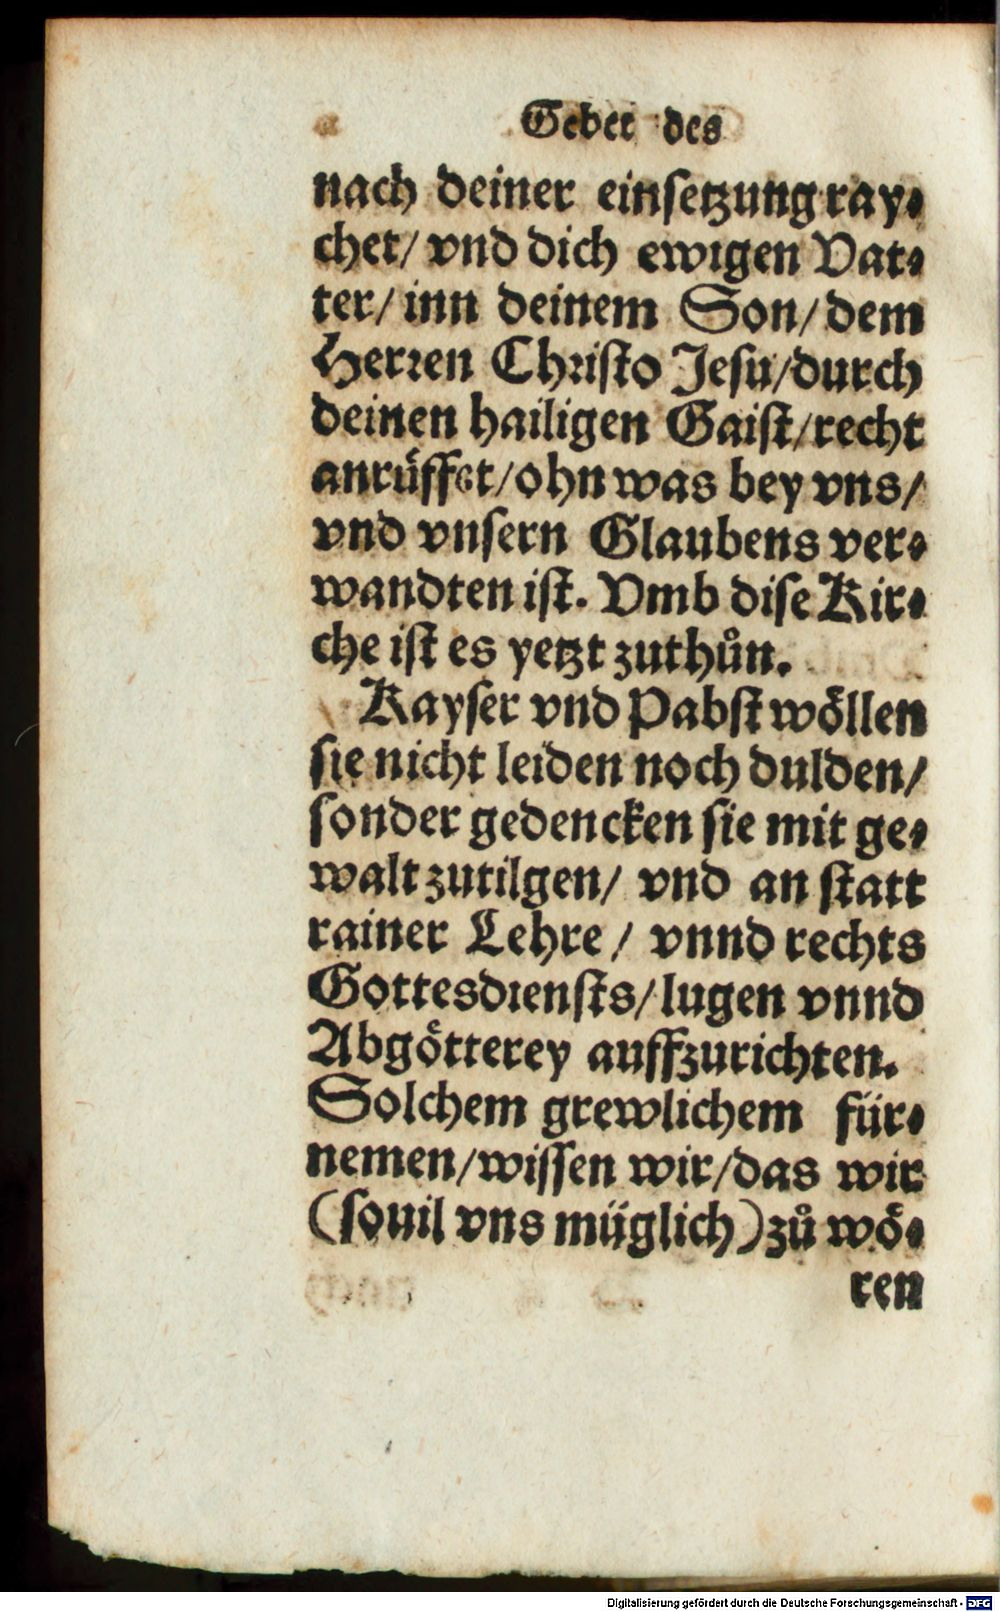 Gebet des
nach deiner einsetzung ray⸗
chet/ vnd dich ewigen Vat⸗
ter/ inn deinem Son/ dem
Herꝛen Chꝛiſto Jeſu/ durch
deinen hailigen Gaiſt/ recht
anruͤffet/ ohn was bey vns/
vnd vnſern Glaubens ver⸗
wandten iſt. Vmb diſe Kir⸗
che iſt es yetzt zuthuͦn.
Kayſer vnd Pabſt woͤllen
ſie nicht leiden noch dulden/
ſonder gedencken ſie mit ge⸗
walt zutilgen/ vnd an ſtatt
rainer Lehre / vnnd rechts
Gottesdienſts/ lugen vnnd
Abgoͤtterey auffzurichten.
Solchem grewlichem für⸗
nemen/ wiſſen wir/ das wir
(ſouil vns müglich) zuͦ woͤ⸗
ren
Digitalisierung gefördert durch die Deutsche Forschungsgemeinschaft - DFG